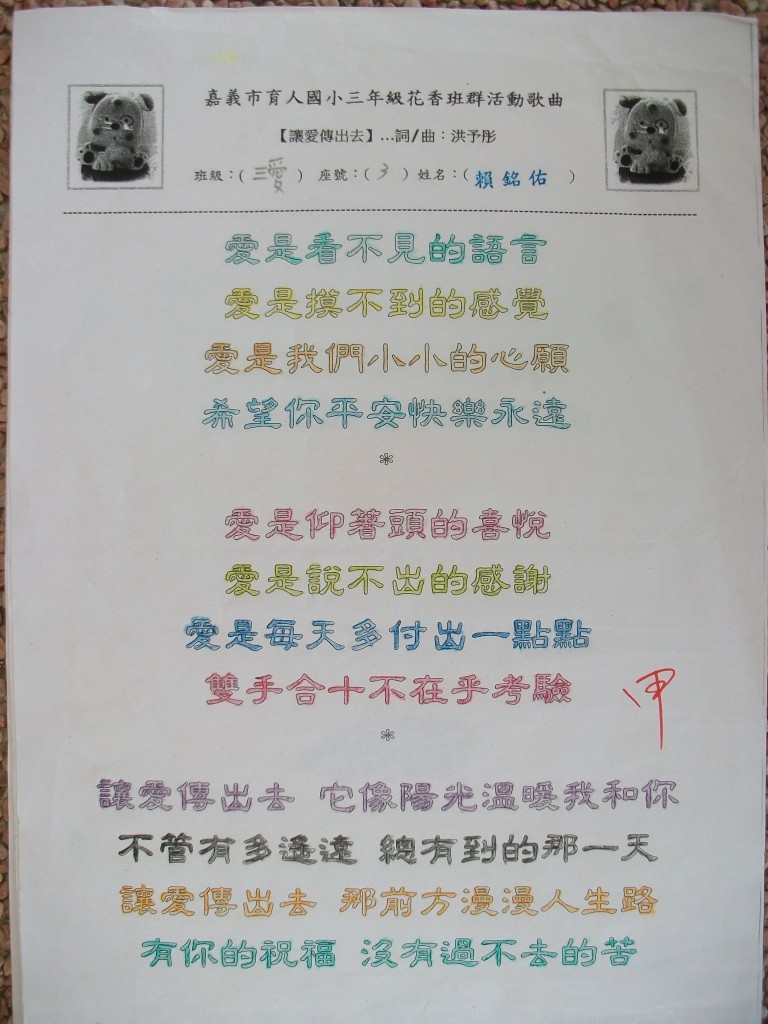 嘉義市育人國小三年級花香班群活動歌曲
【讓愛傳出去】…詞/曲：洪予彤
班級：( 三愛 ) 座號：( 3 ) 姓名：( 賴銘佑 )
愛是看不見的語言
愛是摸不到的感覺
愛是我們小小的心願
希望你平安快樂永遠
*
愛是仰著頭的喜悅
愛是說不出的感謝
愛是每天多付出一點點
雙手合十不在乎考驗
甲
*
讓愛傳出去 它像陽光溫暖我和你
不管有多遙遠 總有到的那一天
讓愛傳出去 那前方漫漫人生路
有你的祝福 沒有過不去的苦